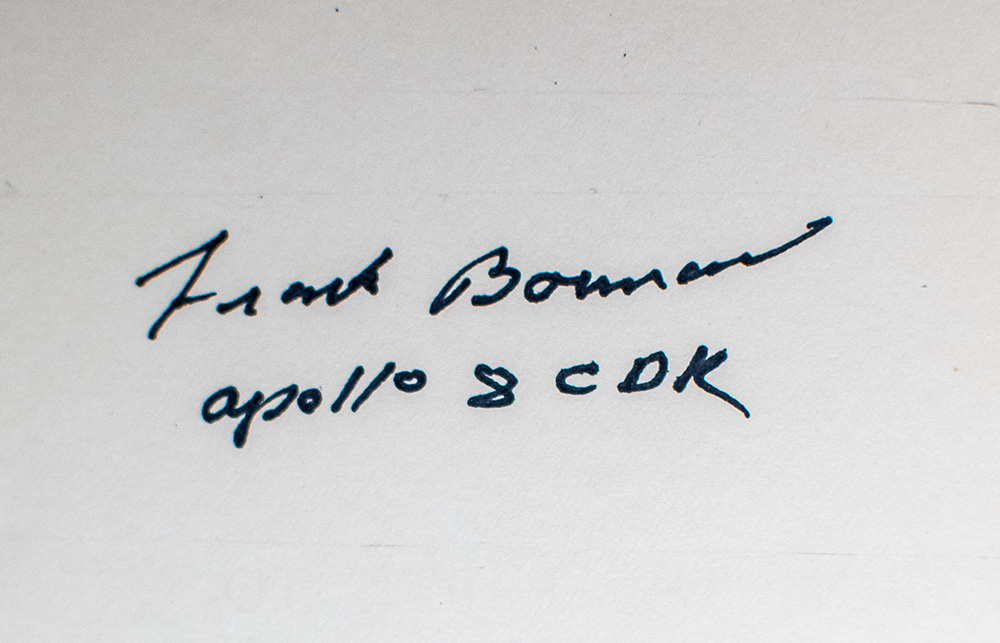 Frank Borman
apollo 8 CDR